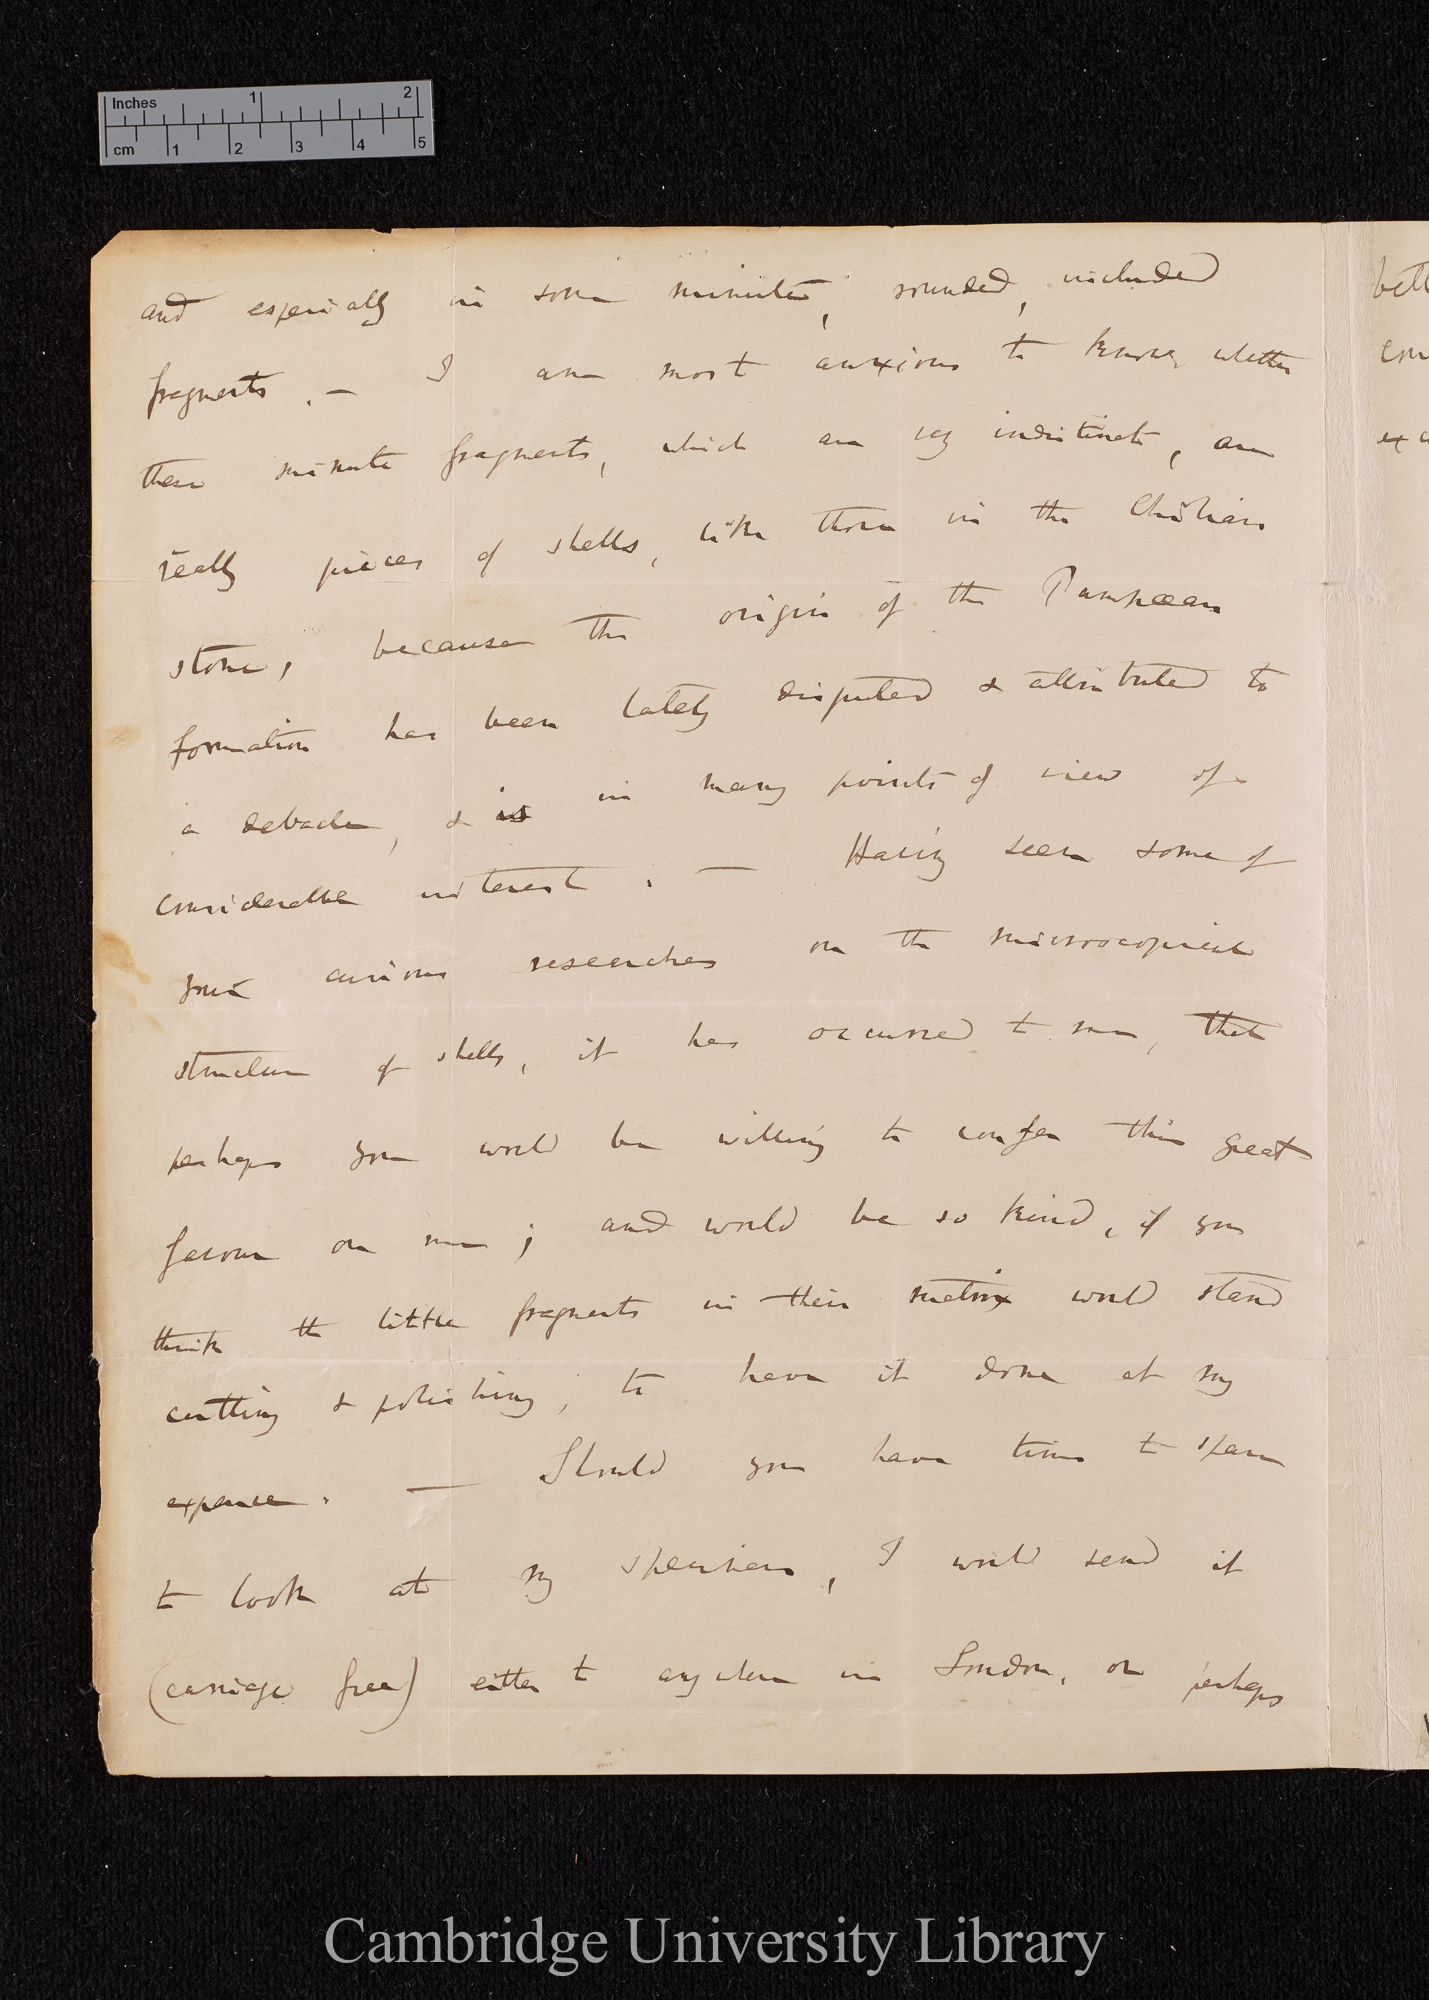 Inches 1 2
cm 1 2 3 4 5
and especially in some minute, rounded, included
fragments.— I am most anxious to know, whether
these minute fragments, which are very indistinct, are
really pieces of shells, like those in the Chilian
stone, because the origin of the Pampæan
formation has been lately disputed & attributed to
a debacle, & is in many points of view of
considerable interest.— Having seen some of
your curious researches on the microscopical
structure of shells, it has occurred to me, that
perhaps you would be willing to confer this great
favour on me; and would be so kind, if you
think the little fragments in their matrix would stand
cutting & polishing, to have it done at my
expence.— Should you have time to spare
to look at my specimens, I would send it
(carriage free) either to anywhere in London, or perhaps
bett
con
Cambridge University Library